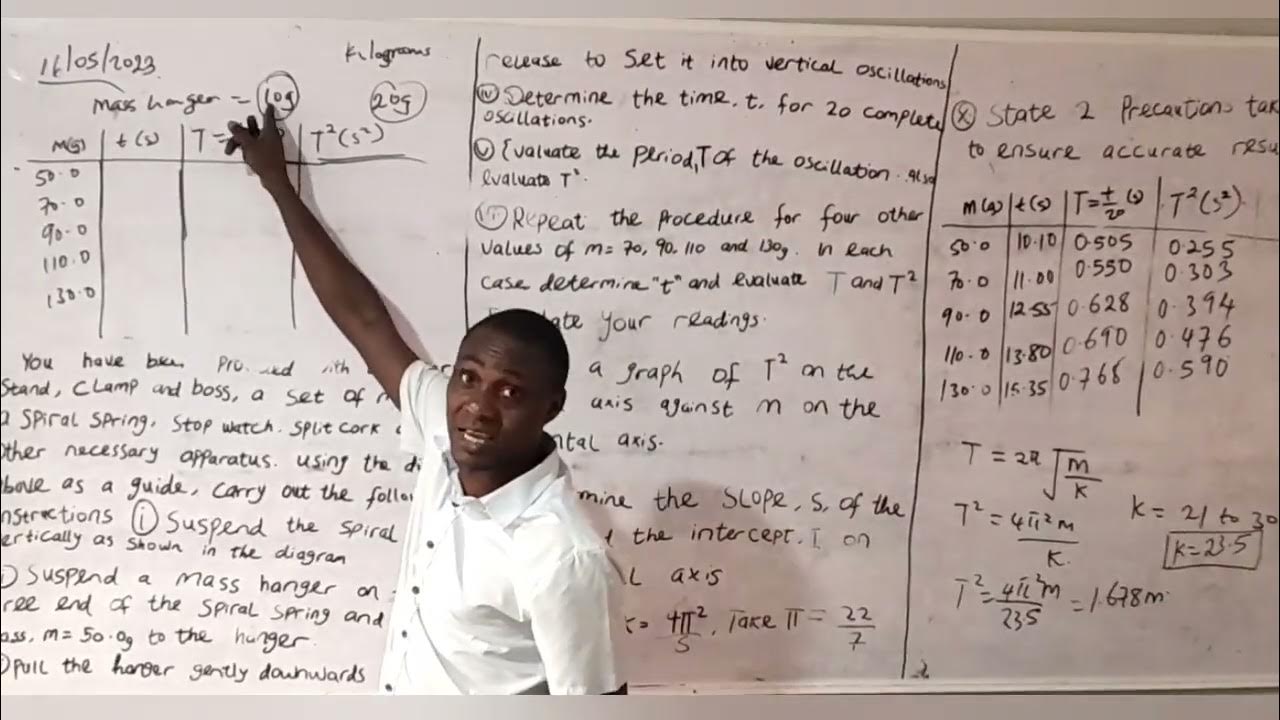 16/05/2023
Kilograms
Mass hanger = 10g 20g
M(g) t(s) T= T²(s²)
50.0
70.0
90.0
110.0
130.0
You have been
Stand, Clamp and boss, a set of
a spiral spring, stop watch. split cork
other necessary apparatus. using the
above as a guide, carry out the
instructions (i) Suspend the spiral
vertically as shown in the diagram
Suspend a mass hanger on
free end of the spiral spring and
mass, m = 50.0g to the hunger.
Pull the hanger gently downwards
release to Set it into vertical oscillations
(iv) Determine the time, t, for 20 complete
oscillations.
(v) Evaluate the period, T of the oscillation. also
evaluate T².
(vi) Repeat the procedure for four other
values of m = 70, 90, 110 and 130g. in each
case determine "t" and evaluate T and T²
your readings.
a graph of T² on the
axis against m on the
axis.
the SLOPE, S, of the
the intercept, I on
axis
= 4π²/S, Take π = 22/7
(X) State 2 Precautions
to ensure accurate
M(g) t(s) T=t/20 (s) T²(s²)
50.0 10.10 0.505 0.255
70.0 11.00 0.550 0.303
90.0 12.55 0.628 0.394
110.0 13.80 0.690 0.476
130.0 15.35 0.768 0.590
T = 2π√(m/K)
T² = 4π²m/K.
K = 21 to 30
K = 23.5
T² = 4π²m/23.5 = 1.678m.